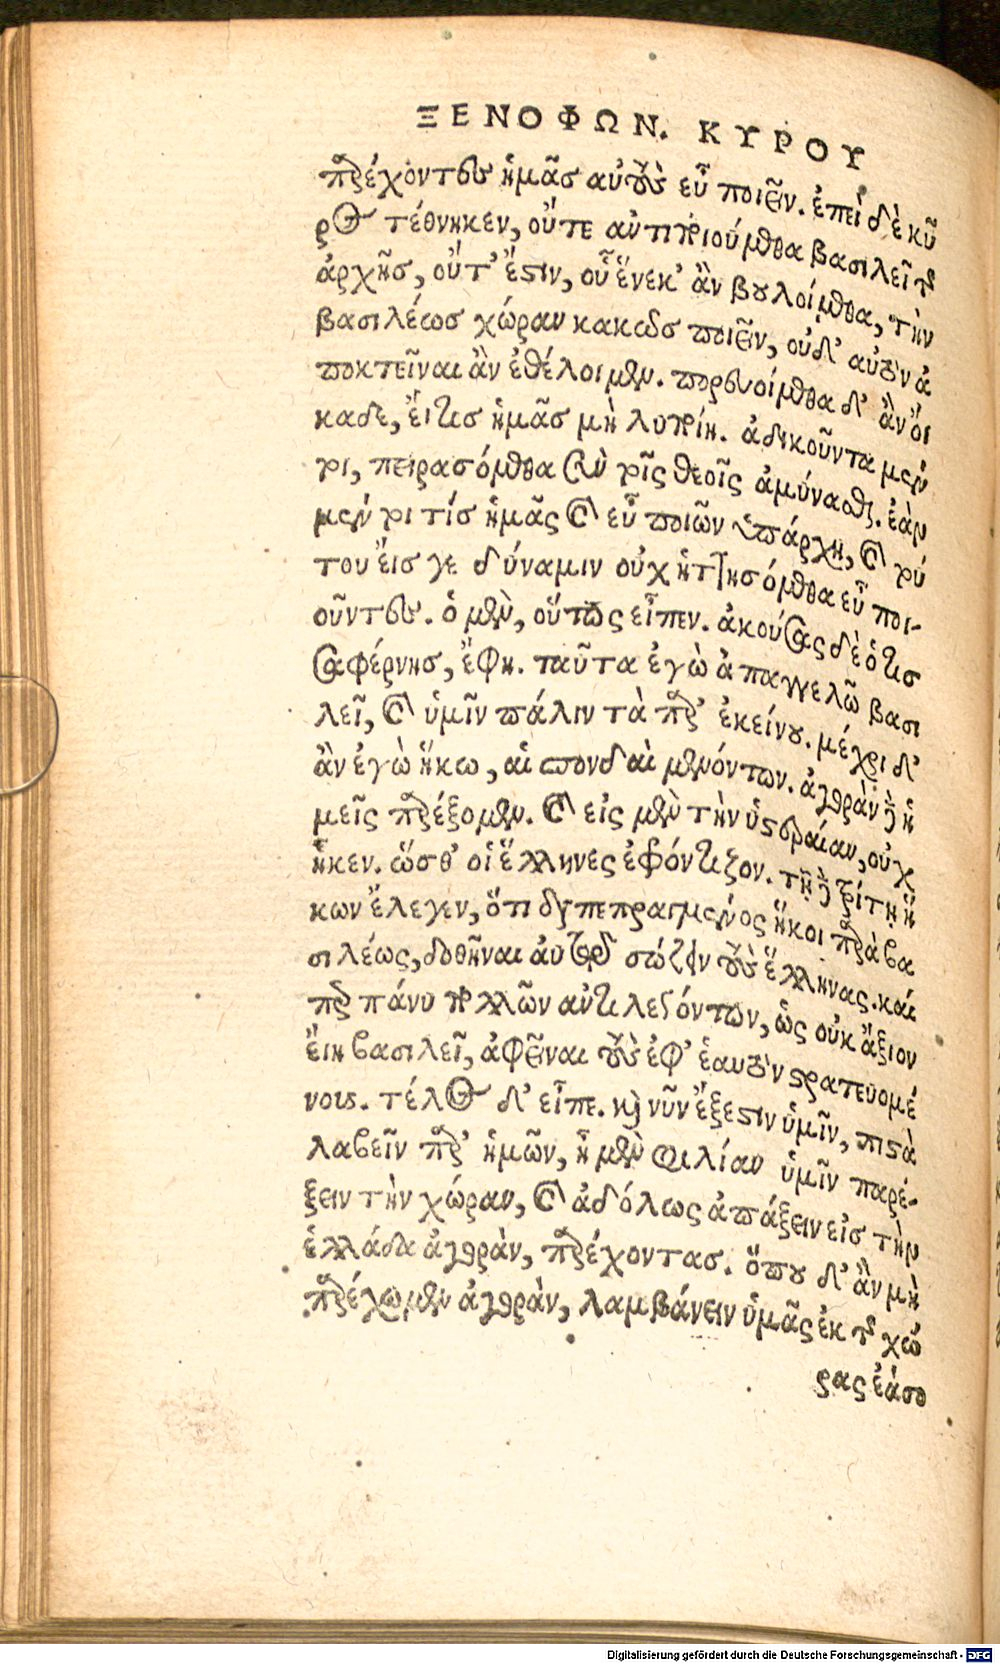 ΞΕΝΟΦΩΝ. ΚΥΡΟΥ
παρέχοντες ἡμᾶσ αὐτοὺς εὖ ποιεῖν. ἐπεὶ δὲ κῦ
ρος τέθνηκεν, οὔτε αὐτιποιούμεθα βασιλεῖ τῆς
ἀρχῆσ, οὔτ' ἔστιν, οὗ ἕνεκ' ἂν βουλοίμεθα, τὴν
βασιλέωσ χώραν κακῶσ ποιεῖν, οὐδ' αὐτὸν ἀ
ποκτεῖναι ἂν ἐθέλοιμεν. πορευοίμεθα δ' ἂν οἴ
καδε, εἴ τισ ἡμᾶσ μὴ λυποίη. ἀδικοῦντα μέν
τοι, πειρασόμεθα σὺν τοῖς θεοῖς ἀμύνασθαι. ἐὰν
μέν τοι τίσ ἡμᾶς καὶ εὖ ποιῶν ὑπάρχη, καὶ τού
του εἴσ γε δύναμιν οὐχ ἡττησόμεθα εὖ ποι-
οῦντες. ὁ μὲν, οὕτως εἶπεν. ἀκούσας δὲ ὁ τισ
σαφέρνησ, ἔφη. ταῦτα ἐγὼ ἀπαγγελῶ βασι
λεῖ, καὶ ὑμῖν πάλιν τὰ παρ' ἐκείνου. μέχρι δ'
ἂν ἐγὼ ἥκω, αἱ σπονδαὶ μενόντων. ἀγορὰν δὲ ἡ
μεῖς παρέξομεν. καὶ εἰς μὲν τὴν ὑστεραίαν, οὐχ
ἧκεν. ὥσθ' οἱ ἕλληνες ἐφρόντιζον. τῇ δὲ τρίτῃ ἥ
κων ἔλεγεν, ὅτι διαπεπραγμένος ἥκοι παρὰ βα
σιλέως, δοθῆναι αὐτῷ σώζειν τοὺς ἕλληνας. καί
περ πάνυ πολλῶν αὐτιλεγόντων, ὡς οὐκ ἄξιον
εἴη βασιλεῖ, ἀφεῖναι τοὺς ἐφ' ἑαυτὸν στρατευομέ
νους. τέλος δ' εἶπε. καὶ νῦν ἔξεστιν ὑμῖν, πιστὰ
λαβεῖν παρ' ἡμῶν, ἦ μὲν φιλίαν ὑμῖν παρέ-
ξειν τὴν χώραν, καὶ ἀδόλως ἀπάξειν εἰσ τὴν
ἑλλάδα ἀγορὰν, παρέχοντασ. ὅπου δ' ἂν μὴ
παρέχωμεν ἀγορὰν, λαμβάνειν ὑμᾶς ἐκ τῆς χώ
ρας ἐάσο
Digitalisierung gefördert durch die Deutsche Forschungsgemeinschaft - DFG